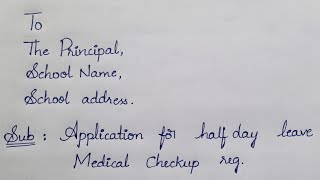 To
The Principal,
School Name,
School address.
Sub : Application for half day leave
Medical Checkup reg.